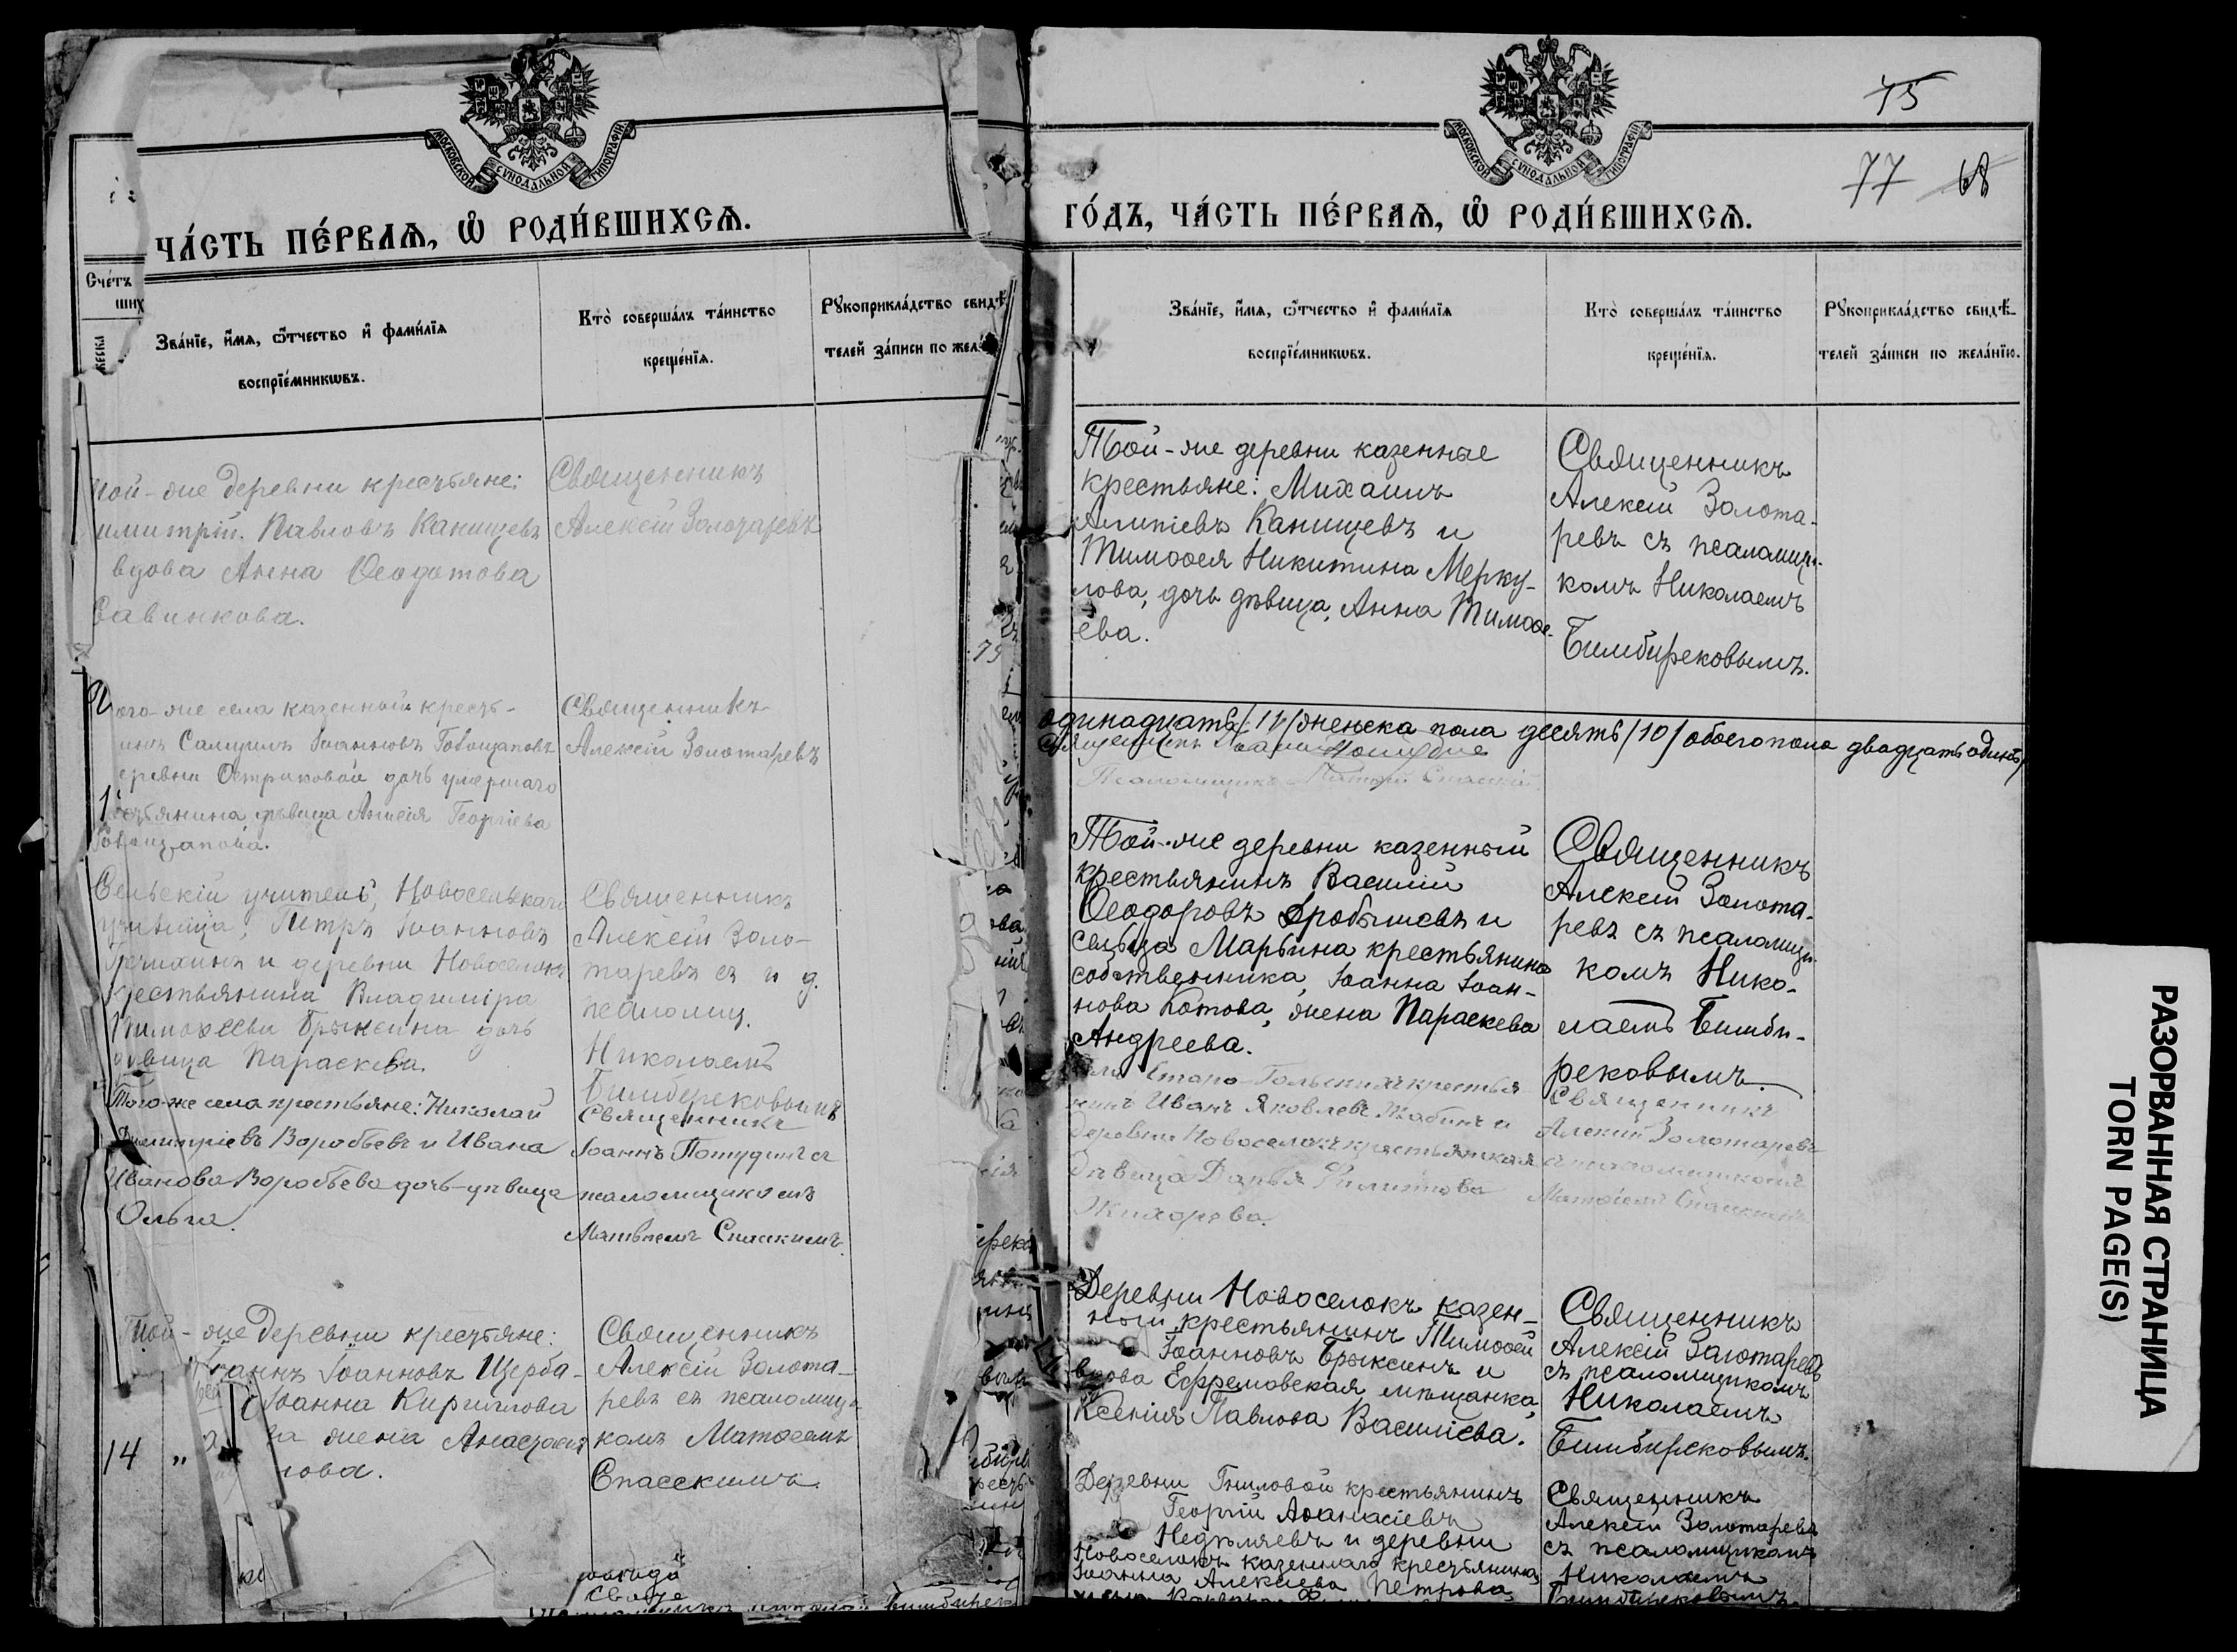 МОСКОВСКОЙ СѴНОДАЛЬНОЙ ТИПОГРАФІИ
ЧА́СТЬ ПЕ́РВАѦ, Ѡ҆ РОДИ́ВШИХСѦ.
Сче́тъ
ших
Зва́нїе, и҆́мѧ, ѻ҆́тчество и҆ фами́лїѧ
воспрїе́мникѡвъ.
Кто̀ соверша́лъ та́инство
креще́нїѧ.
Рꙋкоприкла́дство свидѣ́-
телей за́писи по жел
той-же деревни крестьяне:
имитрій Павловъ Канищевъ
вдова Анна Ѳеодотова
Савинкова.
Священникъ
Алексій Золотаревъ
того-же села казенный кресть-
инъ Самуилъ Іоанновъ Говощаповъ
еревни Остриковой дочь умершаго
крестьянина, дѣвица Анисія Георгіева
Говощапова.
Священникъ
Алексій Золотаревъ
Сельскій учитель, Новосельскаго
училища, Петръ Іоанновъ
и деревни Новоселокъ
крестьянина Владиміра
Тимоѳеева Брыксина дочь
дѣвица Параскева.
Священникъ
Алексій Золо-
таревъ съ и д.
псаломщ.
Николаемъ
Бимберековымъ
Того же села крестьяне: Николай
Димитріевъ Воробьевъ и Ивана
Иванова Воробьева дочь-дѣвица
Ольга.
Священникъ
Іоаннъ Потудинъ съ
псаломщикомъ
Матвѣемъ Спасскимъ.
Той-же деревни крестьяне:
Іоаннъ Іоанновъ Щерба-
Іоанна Кириллова
жена Анастасія
лова.
14 "
Священникъ
Алексій Золота-
ревъ съ псаломщи-
комъ Матѳеемъ
Спасскимъ.
75
77 68
МОСКОВСКОЙ СѴНОДАЛЬНОЙ ТИПОГРАФІИ
ГО́ДЪ, ЧА́СТЬ ПЕ́РВАѦ, Ѡ҆ РОДИ́ВШИХСѦ.
Зва́нїе, и҆́мѧ, ѻ҆́тчество и҆ фами́лїѧ
воспрїе́мникѡвъ.
Кто̀ соверша́лъ та́инство
креще́нїѧ.
Рꙋкоприкла́дство свидѣ́-
телей за́писи по жела́нїю.
Той-же деревни казенные
крестьяне: Михаилъ
Алипіевъ Канищевъ и
Тимоѳея Никитина Мерку-
лова, дочь дѣвица, Анна Тимоѳе-
ева.
Священникъ
Алексій Золота-
ревъ съ псаломщи-
комъ Николаемъ
Бимбирековымъ.
одинадцать /11/ женска пола десять /10/ обоего пола двадцать одинъ
Священникъ Іоаннъ
Псаломщикъ Матѳей Спасскій
Той-же деревни казенный
крестьянинъ Василій
Ѳеодоровъ Дробышевъ и
сельца Марьина крестьянина
собственника, Іоанна Іоан-
нова Котова, жена Параскева
Андреева.
Священникъ
Алексій Золота-
ревъ съ псаломщи-
комъ Нико-
лаемъ Бимби-
рековымъ.
Старо-Гольскій крестья
нинъ Иванъ Яковлевъ Жабинъ и
деревни Новоселокъ крестьянская
дѣвица Дарья Филиппова
Жихорева.
Священникъ
Алексій Золотаревъ
съ псаломщикомъ
Матѳеемъ Спасскимъ
Деревни Новоселокъ казен-
ный крестьянинъ Тимоѳей
Іоанновъ Брыксинъ и
вдова Ефремовская мѣщанка,
Ксенія Павлова Василіева.
Священникъ
Алексій Золотаревъ
съ псаломщикомъ
Николаемъ
Бимбирековымъ.
Деревни Гниловой крестьянинъ
Георгій Аѳанасіевъ
Недѣляевъ и деревни
Новоселокъ казеннаго крестьянина
Іоанна Алексѣева Петрова
Священникъ
Алексій Золотаревъ
съ псаломщикомъ
Николаемъ
Бимбирековымъ.
РАЗОРВАННАЯ СТРАНИЦА
TORN PAGE(S)